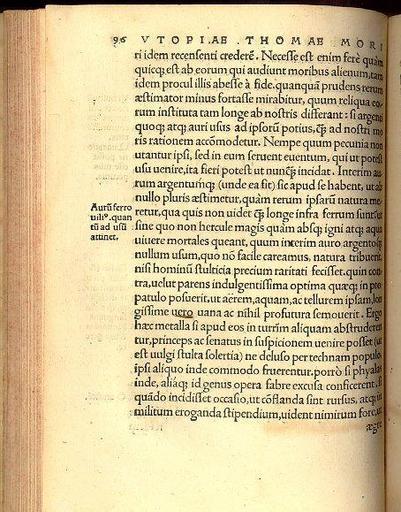 96 VTOPIAE THOMAE MORI
ri idem recensenti crederē. Necesse est enim ferè quàm
quicq; est ab eorum qui audiunt moribus alienum, tam
idem procul illis abesse à fide. quanquā prudens rerum
æstimator minus fortasse mirabitur, quum reliqua eo-
rum instituta tam longe ab nostris differant: si argenti
quoq; atq; auri usus ad ipsorū potius, q̃ ad nostri mo
ris rationem accōmodetur. Nempe quum pecunia non
utantur ipsi, sed in eum seruent euentum, qui ut potest
usu uenire, ita fieri potest ut nunq̃ incidat. Interim au-
rum argentumq; (unde ea fit) sic apud se habent, ut ab
nullo pluris æstimetur, quàm rerum ipsarū natura me-
Aurū ferro
uili⁹. quan
tū ad usū
attinet.
retur, qua quis non uidet q̃ longe infra ferrum sunt? ut
sine quo non hercule magis quàm absq; igni atq; aqua
uiuere mortales queant, quum interim auro argentoq;
nullum usum, quo nō facile careamus, natura tribuerit,
nisi hominū stulticia precium raritati fecisset. quin con
tra, uelut parens indulgentissima optima quæq; in pro
patulo posuerit, ut aërem, aquam, ac tellurem ipsam, lon
gissime uero uana ac nihil profutura semouerit. Ergo
hæc metalla si apud eos in turrim aliquam abstruderen
tur, princeps ac senatus in suspicionem uenire posset (ut
est uulgi stulta solertia) ne deluso per technam populo,
ipsi aliquo inde commodo fruerentur. porrò si phyalas
inde, aliaq; id genus opera fabre excusa conficerent, si
quādo incidisset occasio, ut cōflanda sint rursus, atq; in
militum eroganda stipendium, uident nimirum fore, ut
ægre